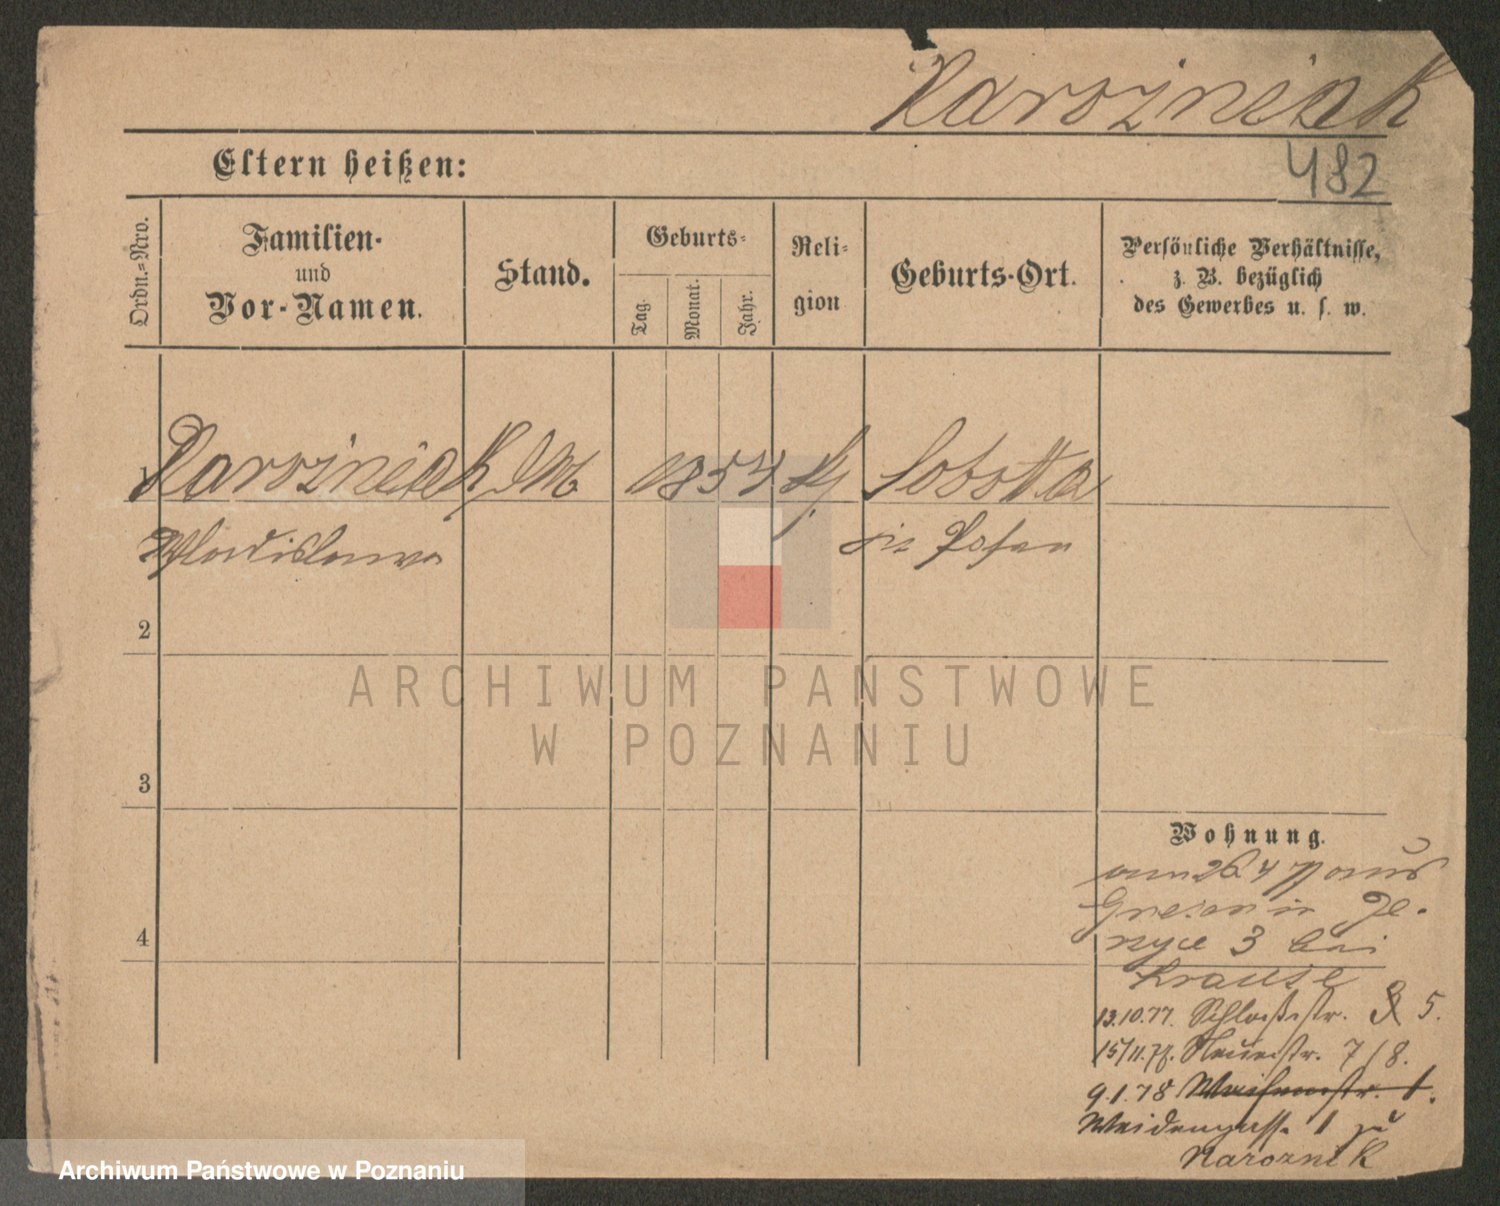 Narożniak
482
Eltern heißen:
Ordn.-Nro.
Familien-
und
Vor-Namen.
Stand.
Geburts-
Tag.
Monat.
Jahr.
Reli-
gion
Geburts-Ort.
Persönliche Verhältnisse,
z. B. bezüglich
des Gewerbes u. s. w.
1 Narożniak 1854 Sobotta
Wladislawa in Posen
2
3
4
ARCHIWUM PAŃSTWOWE
W POZNANIU
Wohnung.
26 4 77 aus
Gnesen in Je-
zyce 3 bei
Krause
13.10.77. Schloßstr. 5.
15/11.77. Neuestr. 7/8.
9.1.78
Weidengasse 1 zu
Naroznik
Archiwum Państwowe w Poznaniu